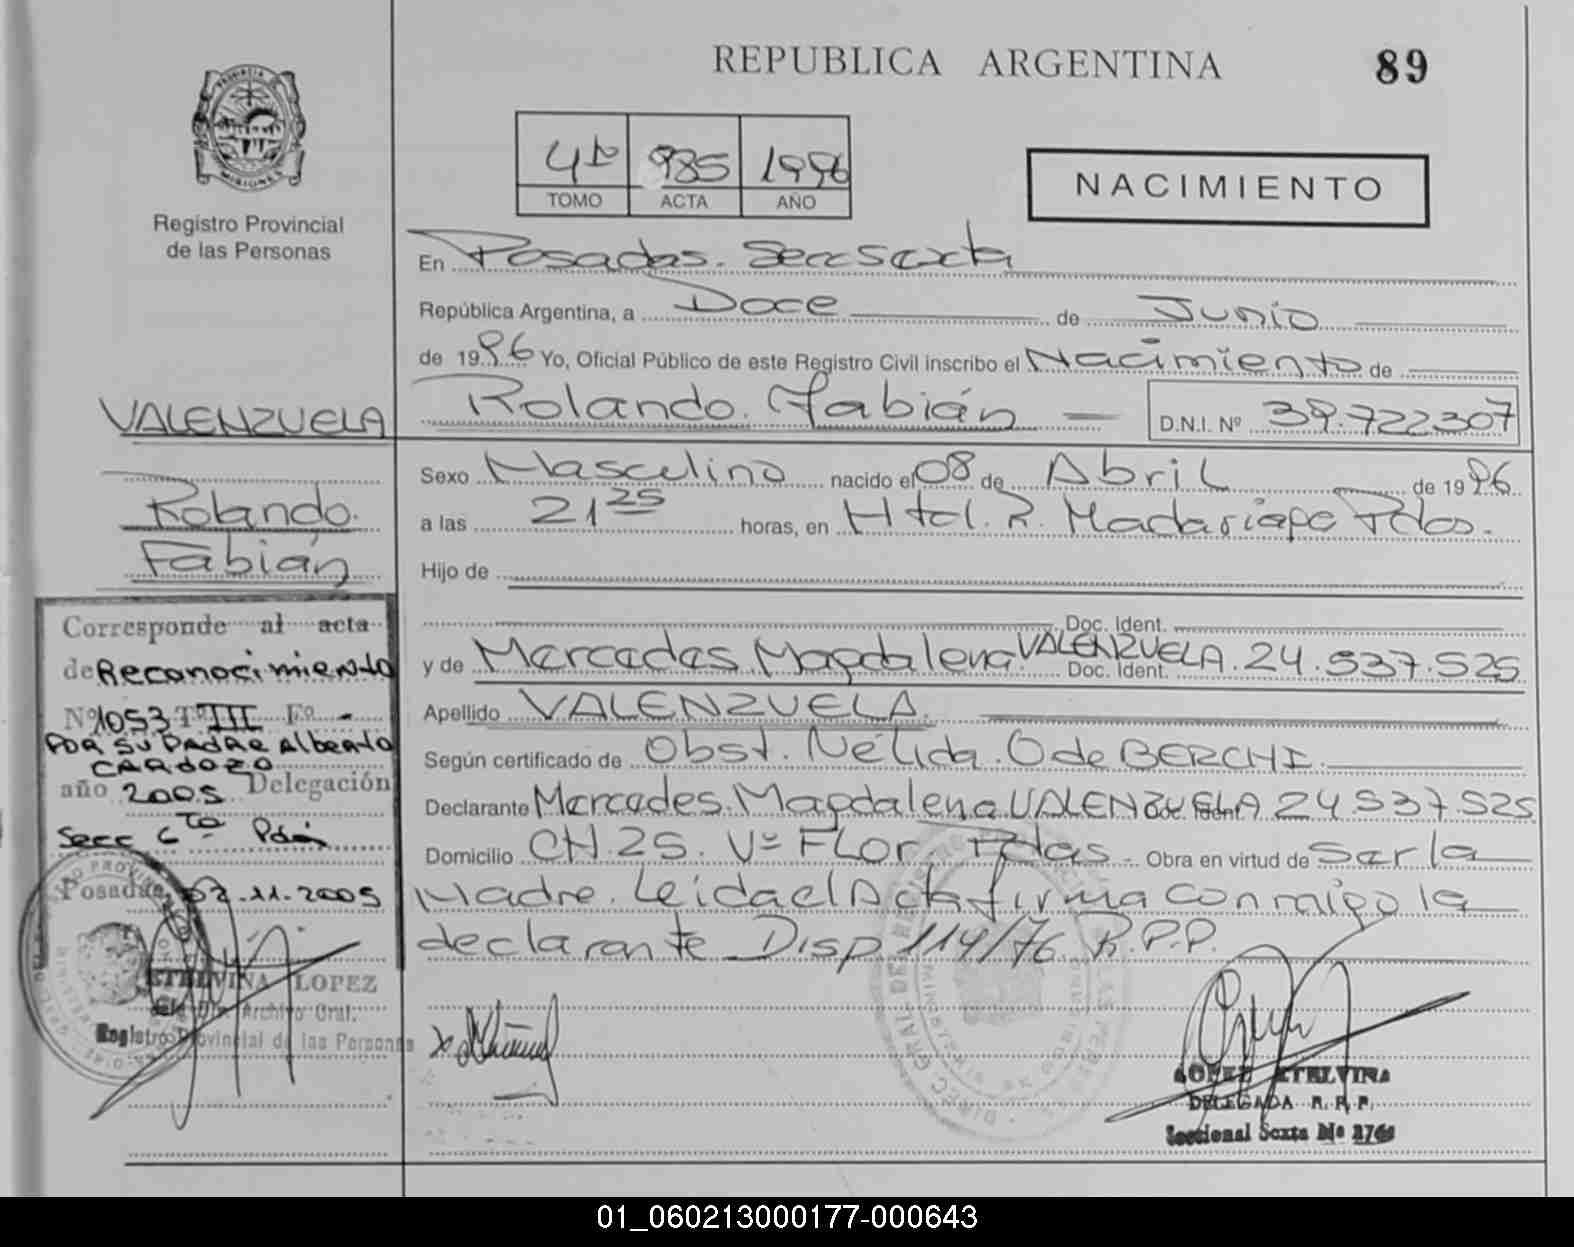 REPUBLICA ARGENTINA
89
PROVINCIA
MISIONES
Registro Provincial
de las Personas
4to 985 1996
TOMO ACTA AÑO
NACIMIENTO
En Posadas. Secc Sexta
República Argentina, a Doce de Junio
de 1996 Yo, Oficial Público de este Registro Civil inscribo el Nacimiento de
Rolando. Fabián D.N.I. Nº 39.722307
VALENZUELA
Rolando.
Fabián
Sexo Masculino nacido el 08 de Abril de 1996
a las 21 25 horas, en Htal. R. Madariaga Pdas.
Hijo de
Doc. Ident.
y de Mercedes Magdalena VALENZUELA. Doc. Ident. 24.537.525
Apellido VALENZUELA.
Según certificado de Obst. Nélida. O de BERCHI.
Declarante Mercedes. Magdalena VALENZUELA Doc. Ident. 24.537.525
Domicilio CH.25. Vº FLor. Pdas. Obra en virtud de Ser la
Madre. Leida el Acta firma conmigo la
declarante Disp 114/76 R.P.P.
Corresponde al acta
de Reconocimiento
Nº 1053 Tº III Fº -
POR SU PADRE Alberto
CARDOZO
año 2005 Delegación
Secc 6ta Pdas
Posadas, 02-11-2005
ETELVINA LOPEZ
Archivo Gral.
Registro Provincial de las Personas
LOPEZ ETELVINA
DELEGADA R. P. P.
Seccional Sexta
01_060213000177-000643